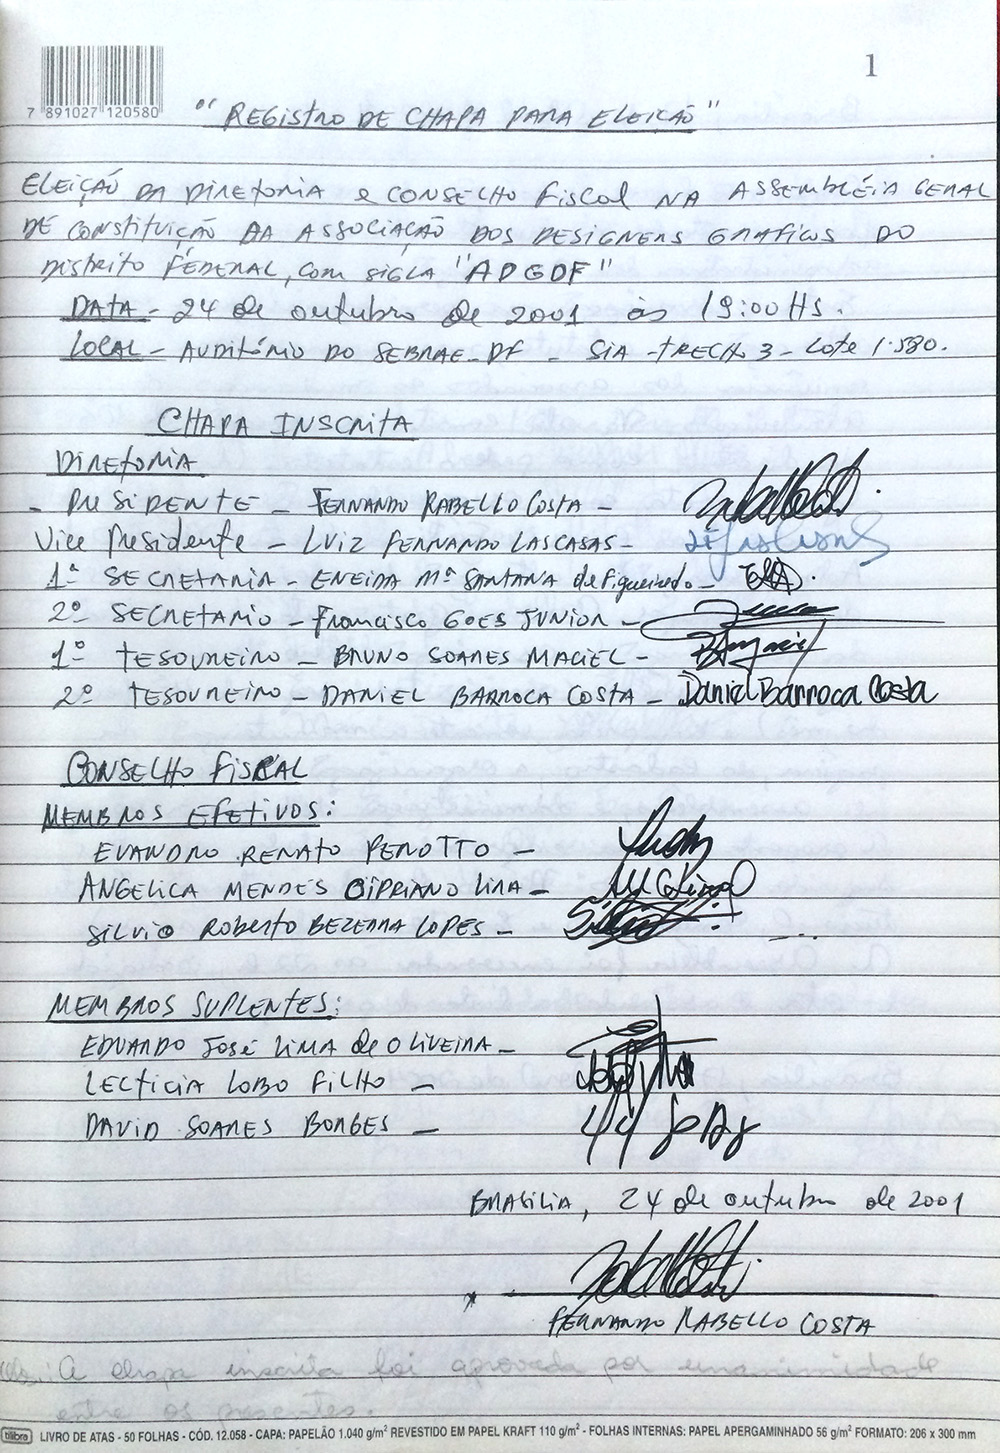 1
7 891027 120580
"REGISTRO DE CHAPA PARA ELEIÇÃO"
ELEIÇÃO DA DIRETORIA e CONSELHO Fiscal NA ASSEMBLÉIA GERAL
DE CONSTITUIÇÃO DA ASSOCIAÇÃO DOS DESIGNERS GRÁFICOS DO
DISTRITO FEDERAL, com SIGLA "ADGDF"
DATA - 24 de outubro de 2001 às 19:00 HS.
LOCAL - AUDITÓRIO DO SEBRAE-DF - SIA -TRECHO 3 - Lote 1.580.
CHAPA INSCRITA
DIRETORIA
- PRESIDENTE - FERNANDO RABELLO COSTA -
Vice Presidente - LUIZ FERNANDO LASCASAS -
1ª SECRETARIA - ENEIDA Mª SANTANA de Figueiredo -
2º SECRETARIO - Francisco GOES JUNIOR -
1º TESOUREIRO - BRUNO SOARES MACIEL -
2º TESOUREIRO - DANIEL BARROCA COSTA - Daniel Barroca Costa
CONSELHO FISCAL
MEMBROS EFETIVOS:
EVANDRO RENATO PEROTTO -
ANGELICA MENDES CIPRIANO LIMA -
SILVIO ROBERTO BEZERRA LOPES -
MEMBROS SUPLENTES:
EDUARDO JOSÉ LIMA de OLIVEIRA -
LECTICIA LOBO FILHO -
DAVID SOARES BORGES -
BRASILIA, 24 de outubro de 2001
FERNANDO RABELLO COSTA
Obs.: A chapa inscrita foi aprovada por unanimidade
entre os presentes.
tilibra LIVRO DE ATAS - 50 FOLHAS - CÓD. 12.058 - CAPA: PAPELÃO 1.040 g/m² REVESTIDO EM PAPEL KRAFT 110 g/m² - FOLHAS INTERNAS: PAPEL APERGAMINHADO 56 g/m² FORMATO: 206 x 300 mm